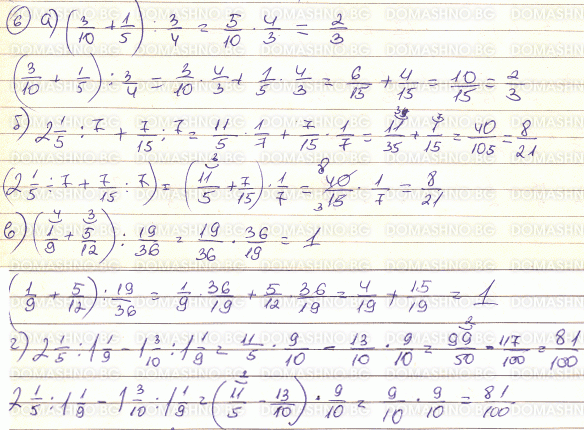 6 а) (3/10 + 1/5) : 3/4 = 5/10 · 4/3 = 2/3
(3/10 + 1/5) : 3/4 = 3/10 · 4/3 + 1/5 · 4/3 = 6/15 + 4/15 = 10/15 = 2/3
б) 2 1/5 : 7 + 7/15 : 7 = 11/5 · 1/7 + 7/15 · 1/7 = 11/35 + 1/15 = 40/105 = 8/21
(2 1/5 : 7 + 7/15 : 7) = (11/5 + 7/15) · 1/7 = 40/15 · 1/7 = 8/21
в) (1/9 + 5/12) : 19/36 = 19/36 · 36/19 = 1
(1/9 + 5/12) : 19/36 = 1/9 · 36/19 + 5/12 · 36/19 = 4/19 + 15/19 = 1
г) 2 1/5 : 1 1/9 - 1 3/10 : 1 1/9 = 11/5 · 9/10 - 13/10 · 9/10 = 99/50 - 117/100 = 81/100
2 1/5 : 1 1/9 - 1 3/10 : 1 1/9 = (11/5 - 13/10) · 9/10 = 9/10 · 9/10 = 81/100